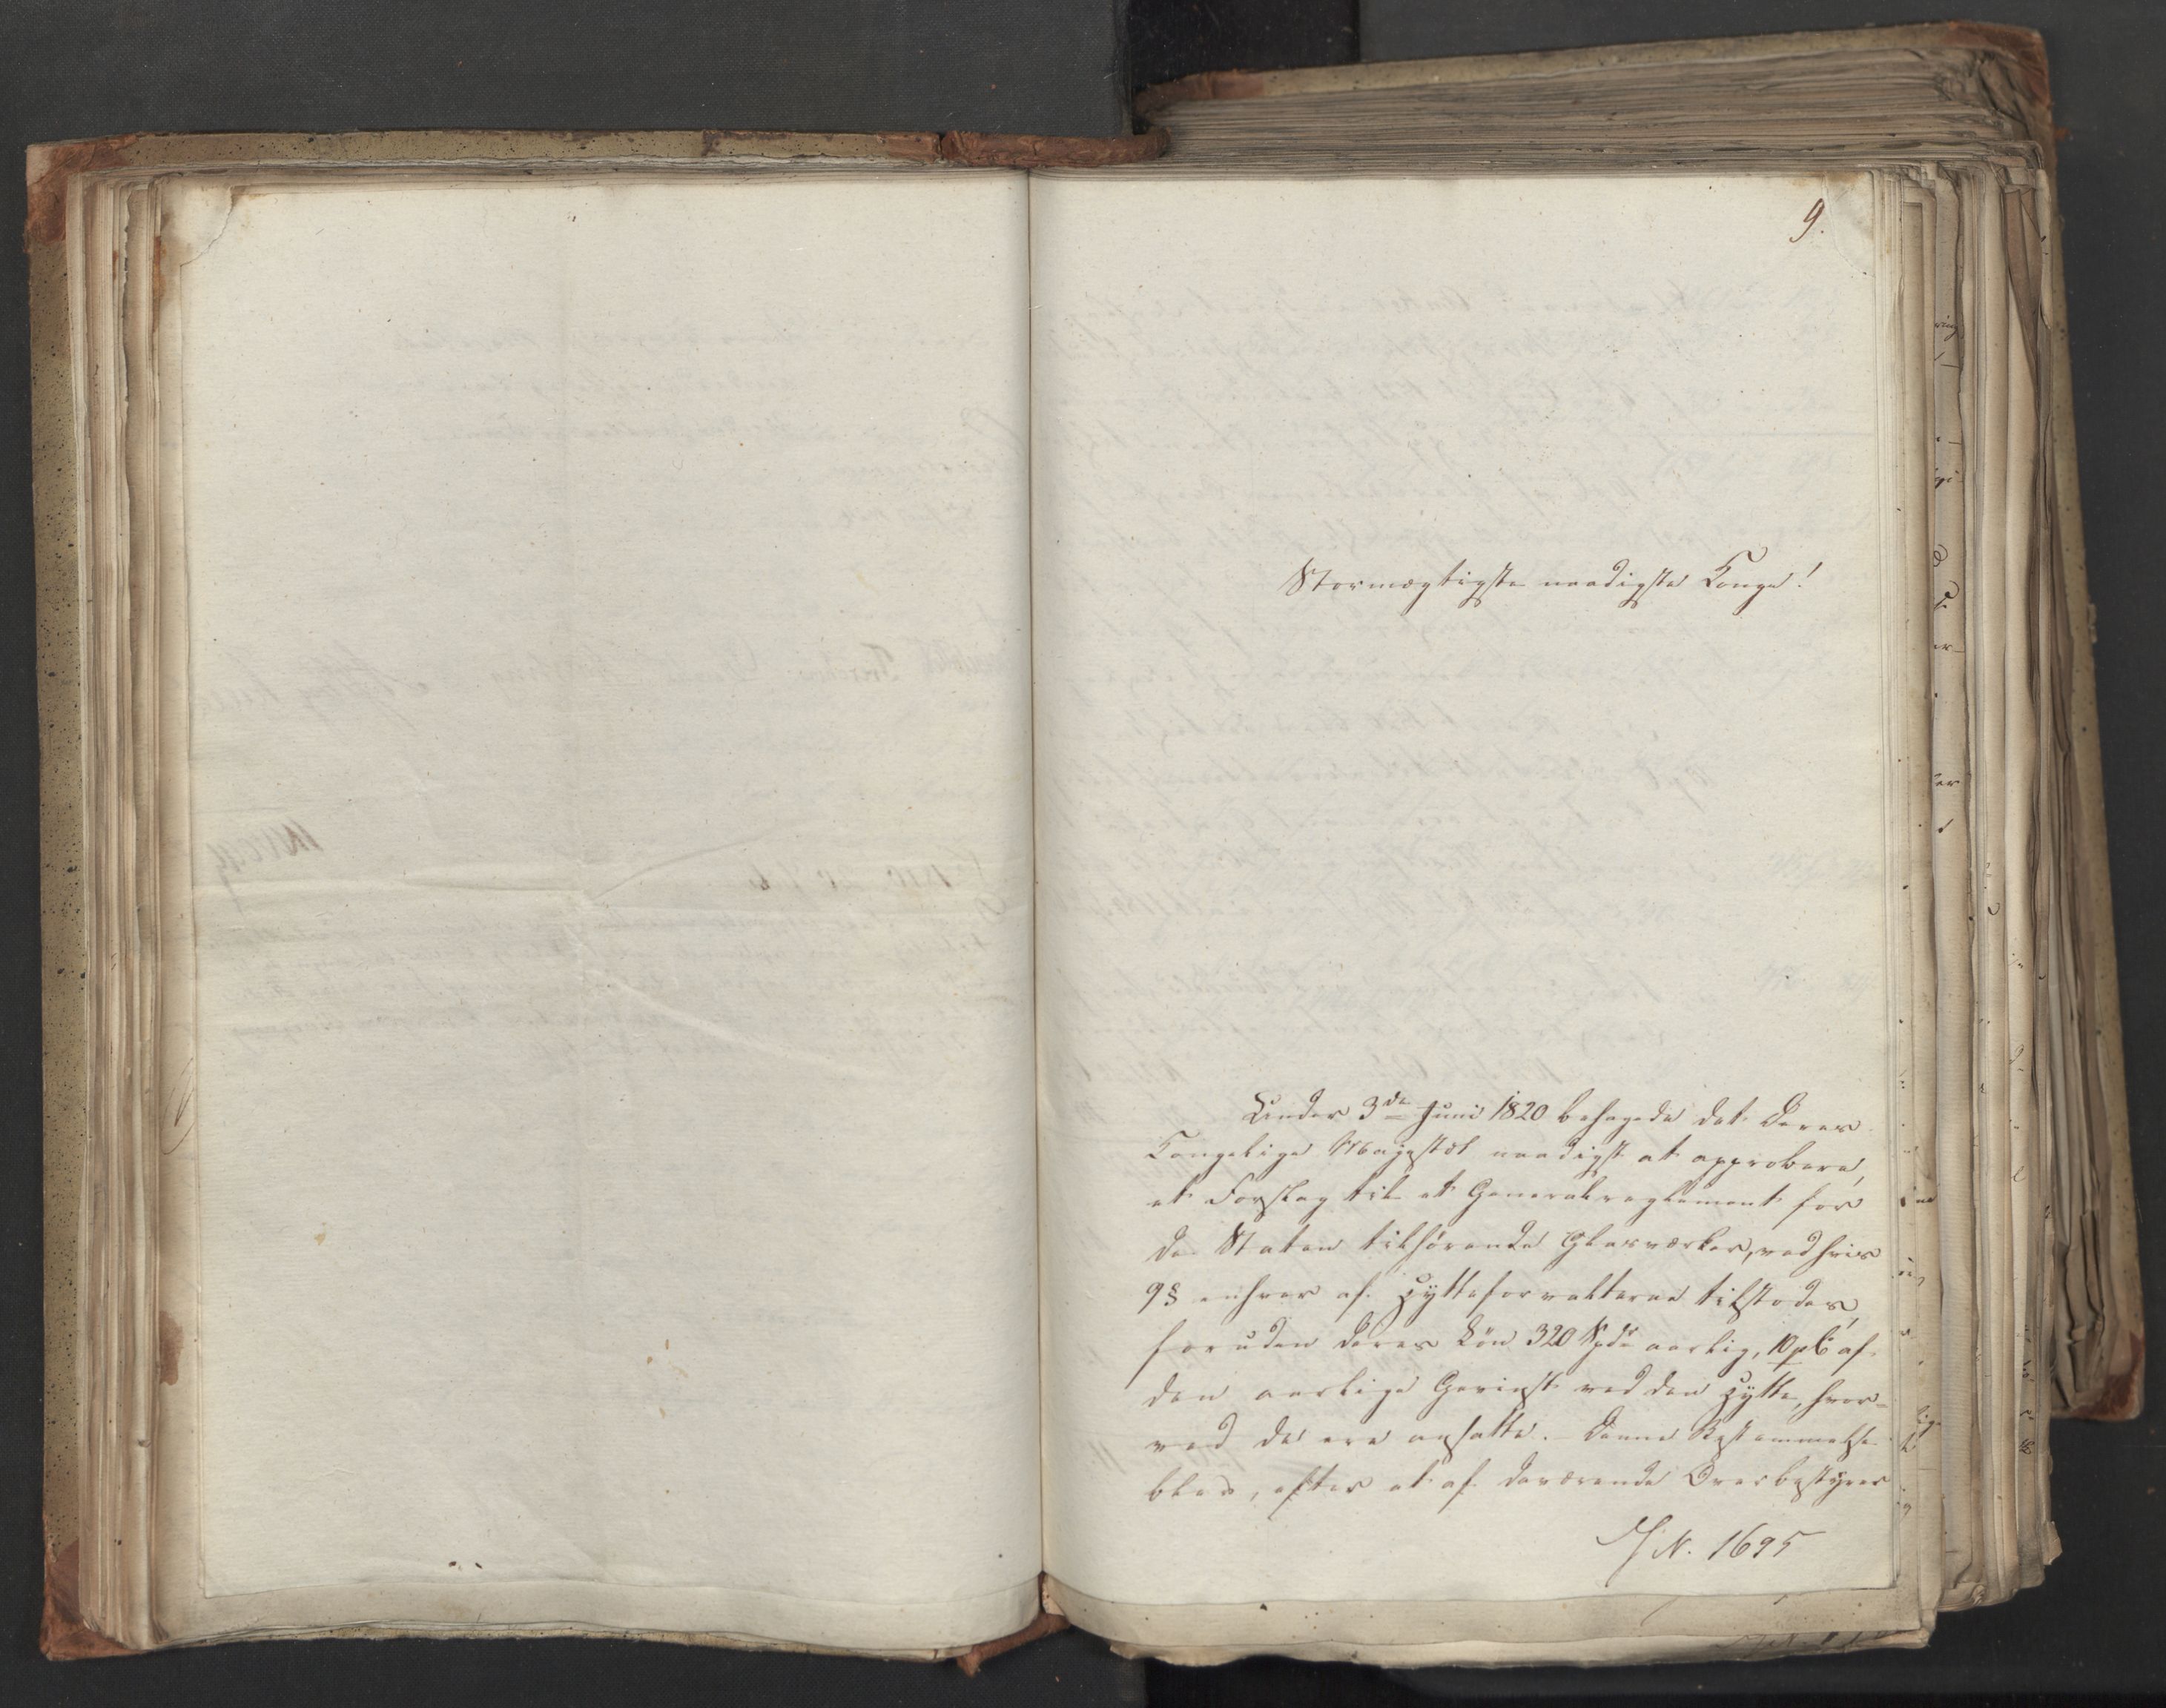 9.
Stormægtigste naadigste Konge!
Under 3de Juni 1820 behagede det Deres
Kongelige Majestæt naadigst at approbere,
et Forslag til et Generalreglement for
de Staten tilhørende Glasværker, ved hvis
9§ enhver af Hytteforvalterne tilstodes,
foruden deres Løn 320 Spdr aarlig, 10 pC af
den aarlige Gevinst ved den Hytte, hvor-
ved de ere ansatte. - Denne Bestemmelse
blev, efter at af daværende Overbestyrer
N. 1695